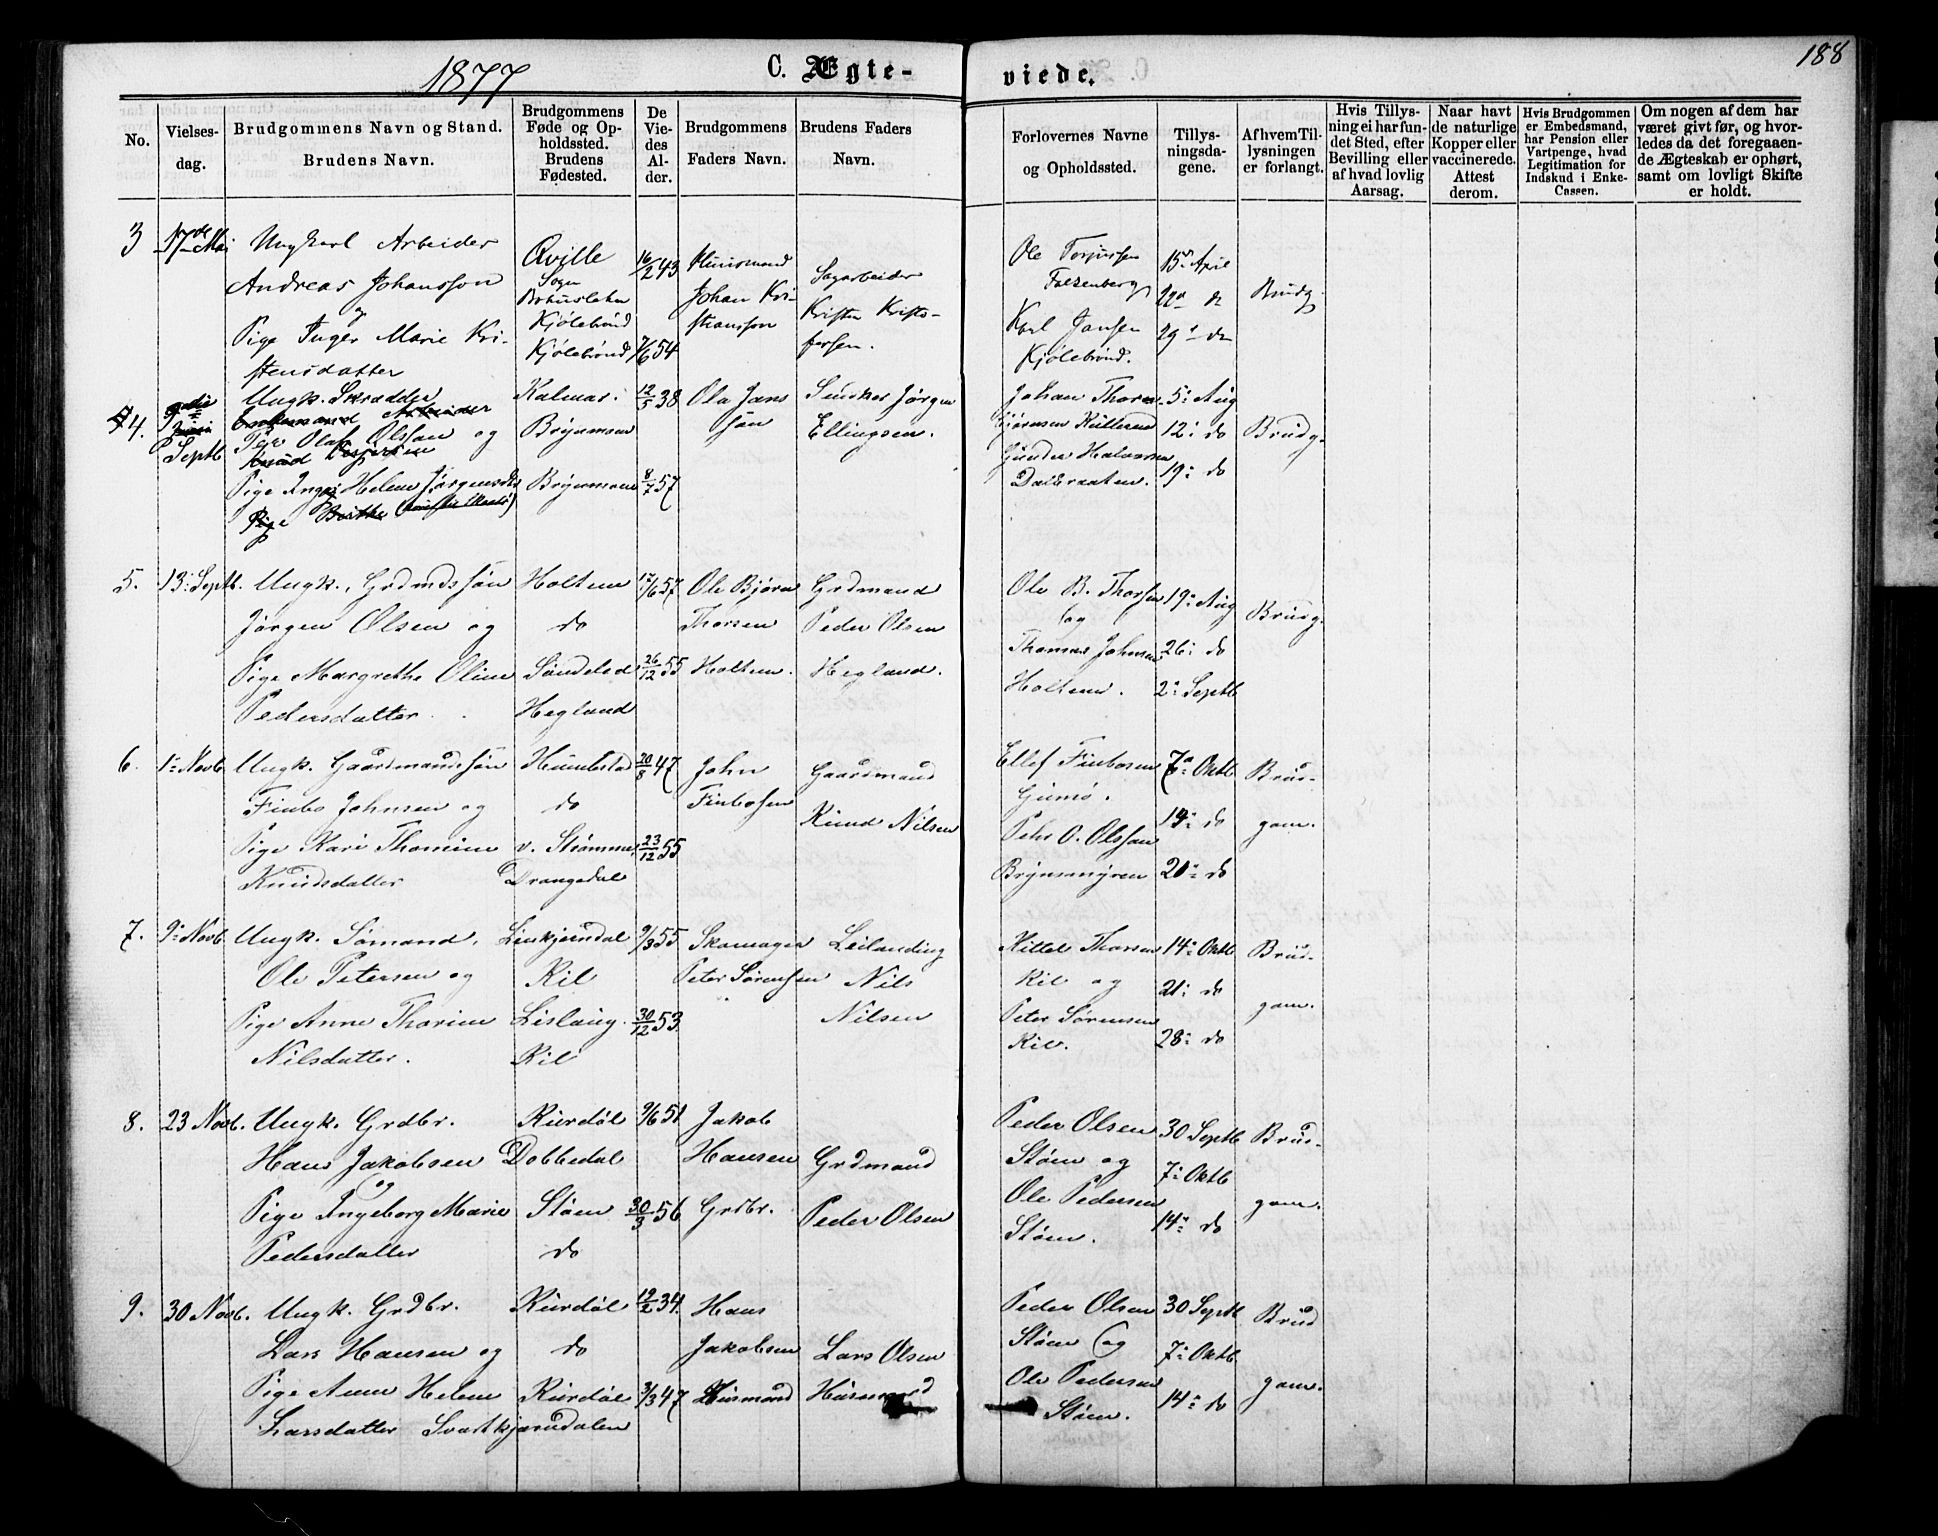 188
1877
C. Ægte-
viede.
No.
Vielses-
dag.
Brudgommens Navn og Stand.
Brudens Navn.
Brudgommens
Føde og Op-
holdssted.
Brudens
Fødested.
De
Vie-
des
Al-
der.
Brudgommens
Faders Navn.
Brudens Faders
Navn.
Forlovernes Navne
og Opholdssted.
Tillys-
ningsda-
gene.
Af hvem Til-
lysningen
er forlangt.
Hvis Tillys-
ning ei har fun-
det Sted, efter
Bevilling eller
af hvad lovlig
Aarsag.
Naar havt
de naturlige
Kopper eller
vaccinerede.
Attest
derom.
Hvis Brudgommen
er Embedsmand,
har Pension eller
Vartpenge, hvad
Legitimation for
Indskud i Enke-
Cassen.
Om nogen af dem har
været givt før, og hvor-
ledes da det foregaaen-
de Ægteskab er ophørt,
samt om lovligt Skifte
er holdt.
3
17de Mai
Ungkarl Arbeider
Andreas Johansson
og
Pige Inger Marie Kri-
stensdatter
Qville
Sogn
Bohuslehn
Kjölebrönd
Kjölebrönd
16/2 43
7/6 54
Huusmand
Johan Kri-
stiansson
Sagarbeider
Kristen Kristo-
fersen.
Ole Torjussen
Karl Jansen
Kjölebrönd.
15de April
22d de
29d de
Brudg.
4.
Septb
Ungk. Skrædder
Olaf Olsson og
Pige Inger Helene Jörgensdtr
Pige Berthe
Kalmar.
Brynsmoen
Brynsmoen
12/5 38
8/7 57
Ola Jans
sön
Snedker Jörgen
Ellingsen.
Johan Thorse-
Gunder Halvorsen
Dalsraaten.
5: Aug
12: do
19: do
Brudg.
5.
13: Septb.
Ungk., Grdmdssön
Jörgen Olsen og
Pige Margrethe Oline
Pedersdatter.
Holten
do
Söndeled
Hegland
17/6 57
26/12 55
Ole Björn
Thorsen
Holten.
Grdmand
Peder Olsen
Hegland.
Ole B. Thorsen
og
Thomas Johnsen
Holten.
19: Aug
26: do
2: Septb
Brudg.
6.
1: Novb
Ungk. Gaardmandssön
Finbo Johnsen og
Pige Kari Thomine
Knudsdatter
Humlestad
do
v. Strömme,
Drangedal
20/8 47
23/12 55
John
Finbosen
Gaardmand
Knud Nilsen
Ellef Finbosen
Gumö.
Peder O. Olsson
Brynsmyren
7de Oktb
14: do
21: do
Brud-
gom.
7.
9: Novb
Ungk. Sömand,
Ole Petersen og
Pige Anne Thorine
Nilsdatter.
Leskjerndal
Kil
Lislaug.
Kil
9/3 55
30/12 53
Skomager
Peter Sörensen
Leilænding
Nils
Nilsen
Kittel Thorsen
Kil og
Peter Sörensen
Kil.
14: Oktb
21: do
28: do
Brud-
gom.
8.
23 Novb.
Ungk. Grdbr.
Hans Jakobsen
og
Pige Ingeborg Marie
Pedersdatter
Rürdöl
Dobbedal
Stöen
do
9/6 51
30/3 56
Jakob
Hansen
Grdbr.
Grdmand
Peder Olsen
Peder Olsen
Stöen og
Ole Pedersen
Stöen.
30 Septb
7: Oktb
14: do
Brud-
gom.
9.
30 Novb.
Ungk. Grdbr.
Lars Hansen og
Pige Anne Helene
Larsdatter Svartkjerndalen
Rürdöl
do
Rürdöl
19/2 34.
3/3 47
Hans
Jakobsen
Husmand
Lars Olsen
Husmand
Peder Olsen
Stöen og
Ole Pedersen
Stöen.
30 Septb
7: Oktb
14: do
Brud
gom.